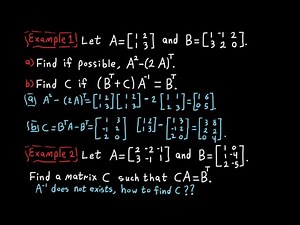 Example 1 Let A=[1 2 1 3] and B=[1 -1 2 3 2 0].
a) Find if possible, A²-(2A)ᵀ.
b) Find C if (Bᵀ+C)A⁻¹=Bᵀ.
a) A²-(2A)ᵀ=[1 2 1 3][1 2 1 3]-2[1 1 2 3]=[1 6 0 5].
b) C=BᵀA-Bᵀ=[1 3 -1 2 2 0][1 2 1 3]-[1 3 -1 2 2 0]=[3 8 2 2 4].
Example 2 Let A=[2 -2 -1 3 -1 1] and B=[1 0 1 -4 2 -5].
Find a matrix C such that CA=Bᵀ.
A⁻¹ does not exists, how to find C??